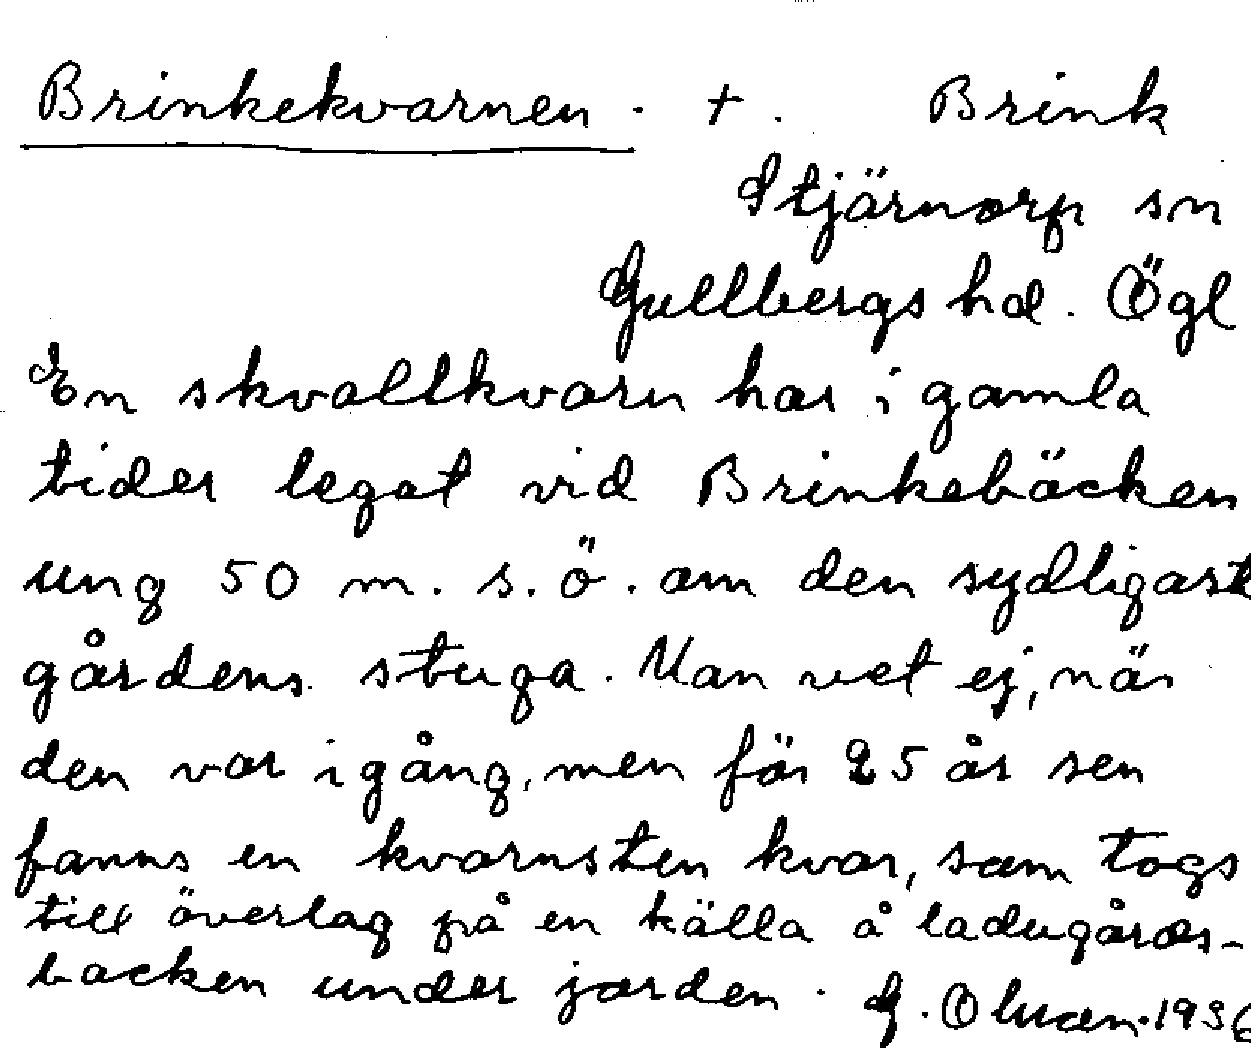 Brinkekvarnen. +. Brink
Stjärnorp sn
Gullbergs hd. Ögl
En skvaltkvarn har i gamla
tider legat vid Brinkebäcken
ung 50 m. s.ö. om den sydligast
gårdens stuga. Man vet ej, när
den var igång, men för 25 år sen
fanns en kvarnsten kvar, som togs
till överlag på en källa å ladugårds-
backen under jorden. G. 1936